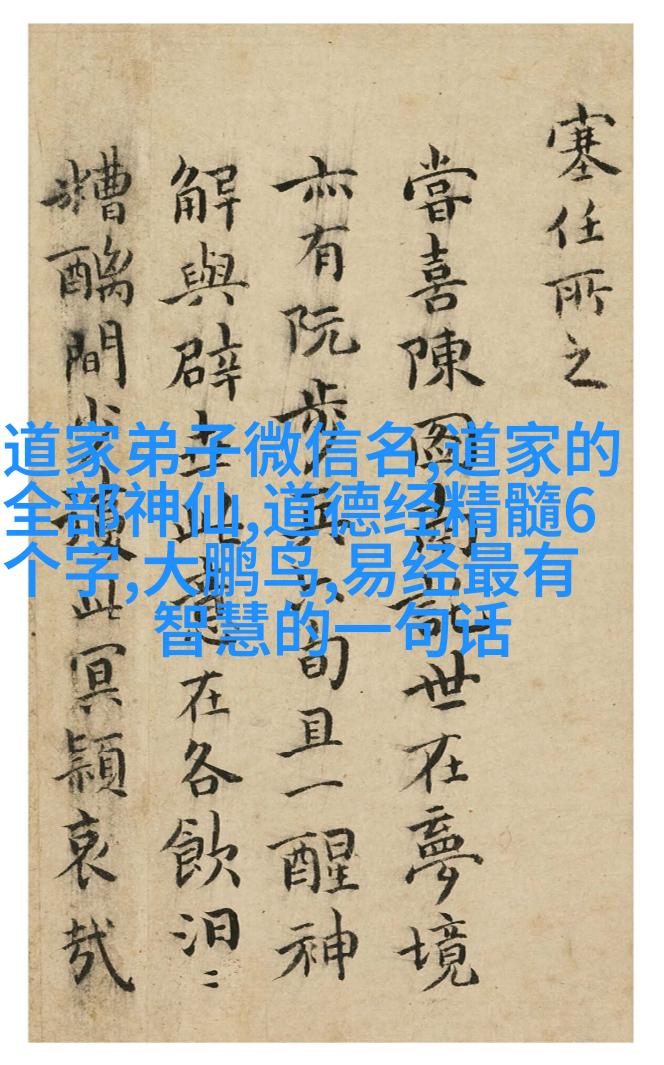 塞任所之
嘗喜陳圖南世在夢境
亦有阮步兵六旬且一醒神
解與辟世此在各飲汩〻
糟醨間此冥穎哀哉
道家弟子微信名,道家的
全部神仙,道德经精髓6
个字,大鹏鸟,易经最有
智慧的一句话